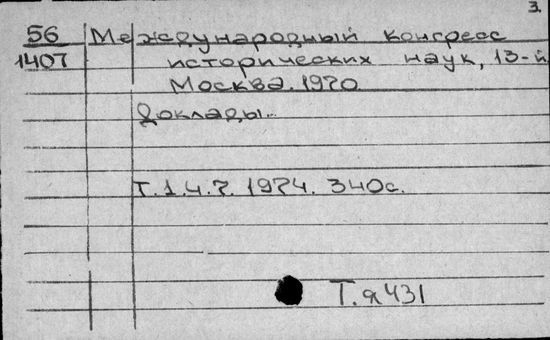 3.
56 Международный конгресс
1407 исторических наук, 13-й
Москва. 1970
Доклады...
Т.1.ч.7. 1974. 340с.
Т.я431